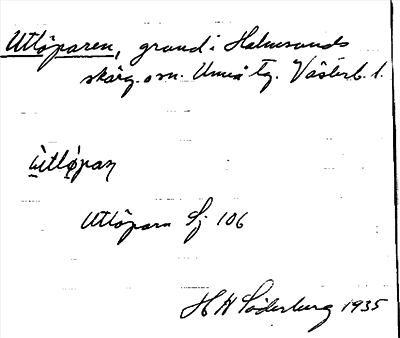 Utlöparen, grund i Holmsunds
skärg. o sn. Umeå tg. Västerb. l.
ùtlø̀paṇ
Utlöparn Sj 106
H H Söderburg 1935